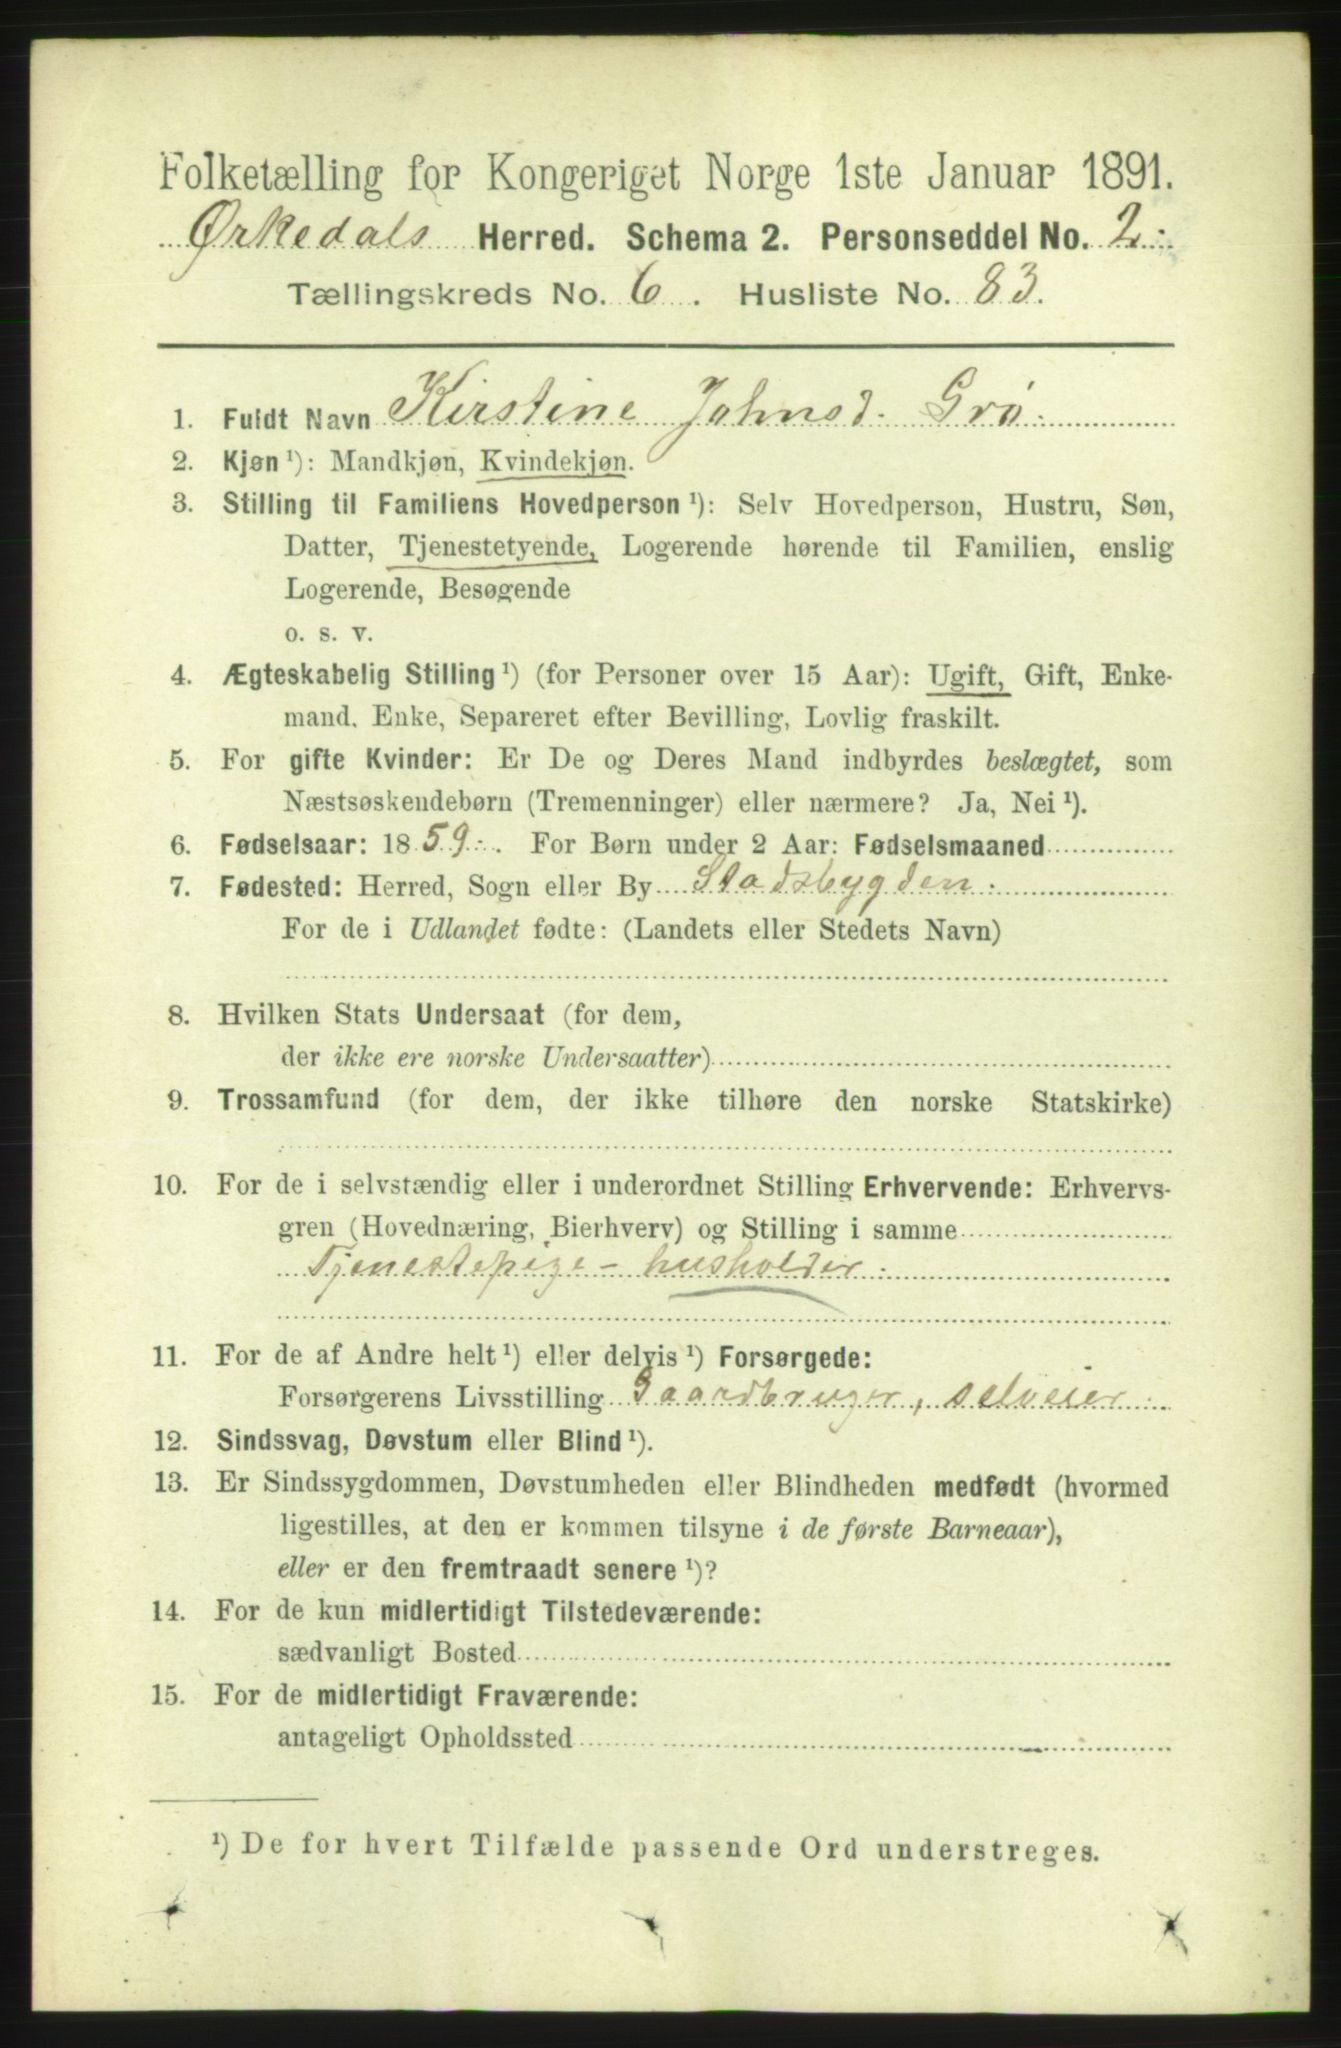 Folketælling for Kongeriget Norge 1ste Januar 1891.
Ørkedals Herred. Schema 2. Personseddel No. 2.
Tællingskreds No. 6. Husliste No. 83.
1. Fuldt Navn Kirstine Johnsd. Grø.
2. Kjøn ¹): Mandkjøn, Kvindekjøn.
3. Stilling til Familiens Hovedperson ¹): Selv Hovedperson, Hustru, Søn,
Datter, Tjenestetyende, Logerende hørende til Familien, enslig
Logerende, Besøgende
o. s. v.
4. Ægteskabelig Stilling ¹) (for Personer over 15 Aar): Ugift, Gift, Enke-
mand, Enke, Separeret efter Bevilling, Lovlig fraskilt.
5. For gifte Kvinder: Er De og Deres Mand indbyrdes beslægtet, som
Næstsøskendebørn (Tremenninger) eller nærmere? Ja, Nei ¹).
6. Fødselsaar: 1859. For Børn under 2 Aar: Fødselsmaaned
7. Fødested: Herred, Sogn eller By Stadsbygden.
For de i Udlandet fødte: (Landets eller Stedets Navn)
8. Hvilken Stats Undersaat (for dem,
der ikke ere norske Undersaatter)
9. Trossamfund (for dem, der ikke tilhøre den norske Statskirke)
10. For de i selvstændig eller i underordnet Stilling Erhvervende: Erhvervs-
gren (Hovednæring, Bierhverv) og Stilling i samme
Tjenestepige - husholder.
11. For de af Andre helt ¹) eller delvis ¹) Forsørgede:
Forsørgerens Livsstilling Gaardbruger, selveier.
12. Sindssvag, Døvstum eller Blind ¹).
13. Er Sindssygdommen, Døvstumheden eller Blindheden medfødt (hvormed
ligestilles, at den er kommen tilsyne i de første Barneaar),
eller er den fremtraadt senere ¹)?
14. For de kun midlertidigt Tilstedeværende:
sædvanligt Bosted
15. For de midlertidigt Fraværende:
antageligt Opholdssted
¹) De for hvert Tilfælde passende Ord understreges.